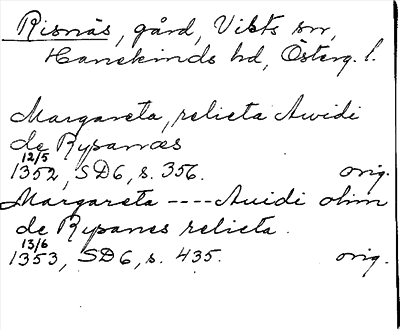 Risnäs, gård, Vists sn,
Hanekinds hd, Österg. l.
Margareta, relicta Awidi
de Rysanæs
12/5
1352, SD6, s. 356. orig.
Margareta ---- Auidi olim
de Rysanes relicta.
13/6
1353, SD6, s. 435. orig.